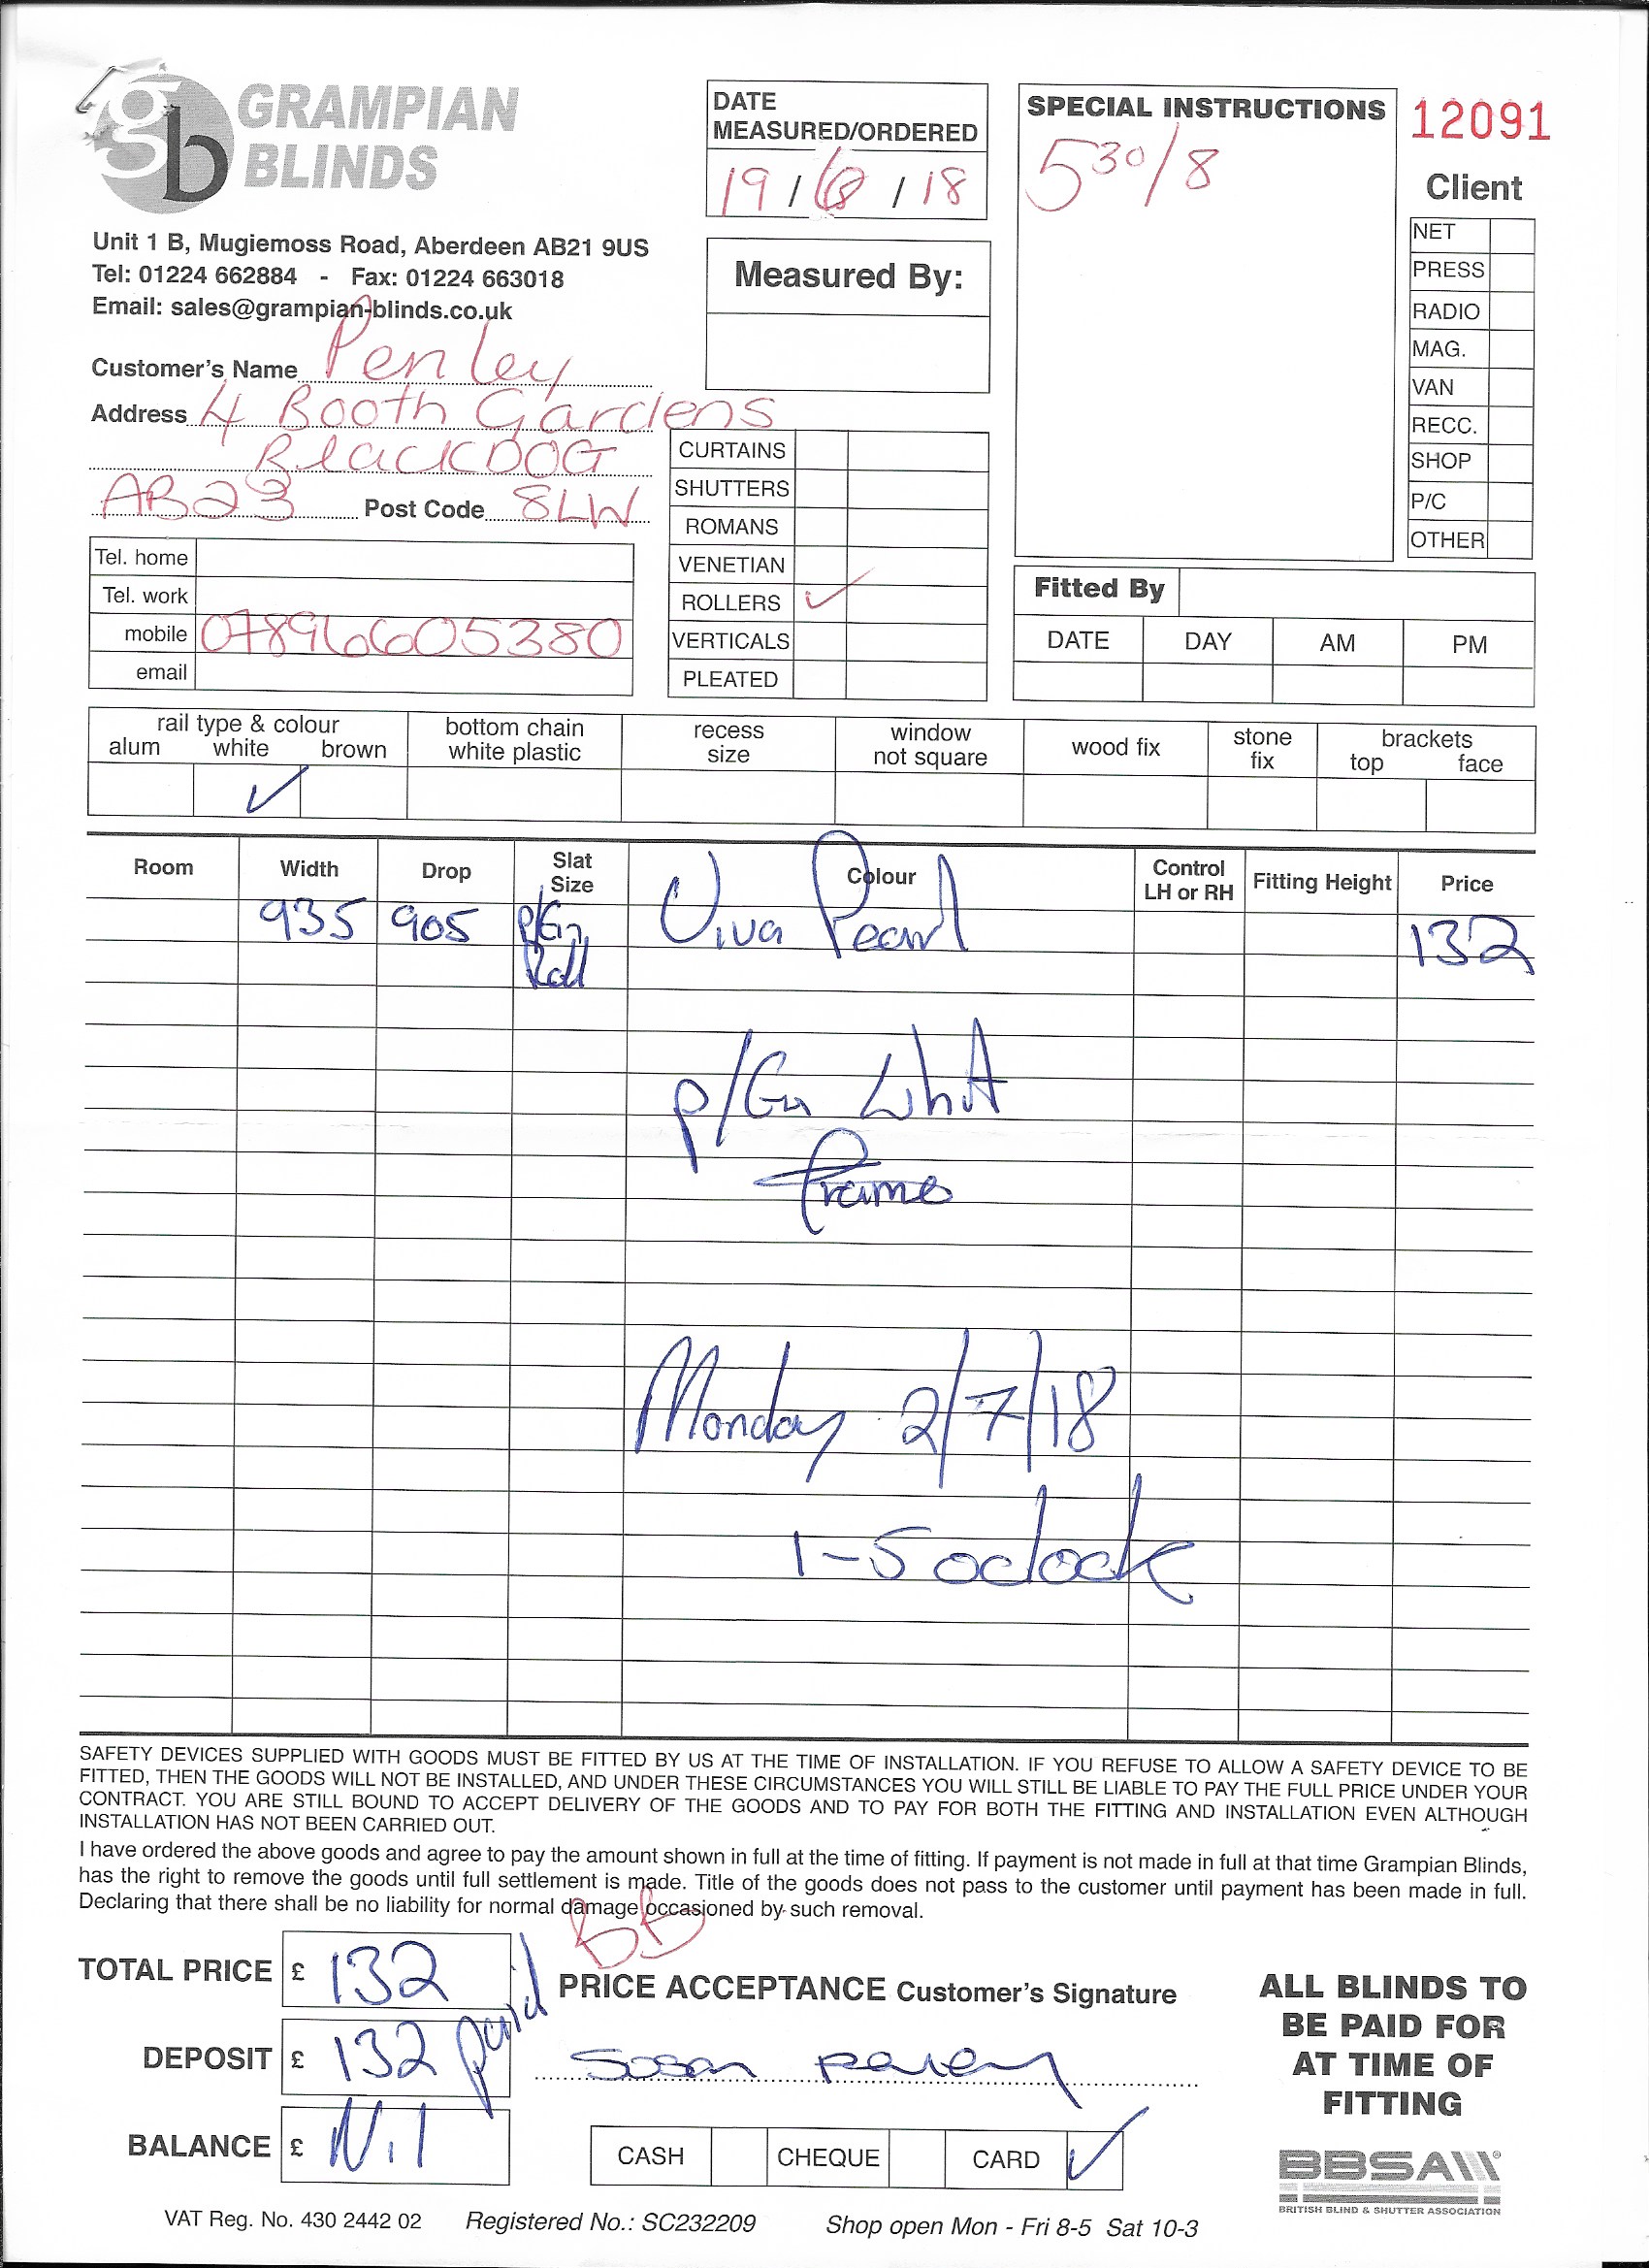 gb GRAMPIAN
BLINDS
Unit 1 B, Mugiemoss Road, Aberdeen AB21 9US
Tel: 01224 662884 - Fax: 01224 663018
Email: sales@grampian-blinds.co.uk
Customer's Name Penley
Address 4 Booth Gardens
BlACKDOG
AB23 Post Code 8LW
Tel. home
Tel. work
mobile 07896605380
email
DATE
MEASURED/ORDERED
19/6/18
Measured By:
CURTAINS
SHUTTERS
ROMANS
VENETIAN
ROLLERS ✓
VERTICALS
PLEATED
SPECIAL INSTRUCTIONS
530/8
12091
Client
NET
PRESS
RADIO
MAG.
VAN
RECC.
SHOP
P/C
OTHER
Fitted By
DATE DAY AM PM
rail type & colour bottom chain recess window wood fix stone brackets
alum white brown white plastic size not square fix top face
✓
Room Width Drop Slat Size Colour Control LH or RH Fitting Height Price
935 905 P/Gn Viva Pearl 132
Roll
P/Gn Whit
frame
Monday 2/7/18
1-5 oclock
SAFETY DEVICES SUPPLIED WITH GOODS MUST BE FITTED BY US AT THE TIME OF INSTALLATION. IF YOU REFUSE TO ALLOW A SAFETY DEVICE TO BE
FITTED, THEN THE GOODS WILL NOT BE INSTALLED, AND UNDER THESE CIRCUMSTANCES YOU WILL STILL BE LIABLE TO PAY THE FULL PRICE UNDER YOUR
CONTRACT. YOU ARE STILL BOUND TO ACCEPT DELIVERY OF THE GOODS AND TO PAY FOR BOTH THE FITTING AND INSTALLATION EVEN ALTHOUGH
INSTALLATION HAS NOT BEEN CARRIED OUT.
I have ordered the above goods and agree to pay the amount shown in full at the time of fitting. If payment is not made in full at that time Grampian Blinds,
has the right to remove the goods until full settlement is made. Title of the goods does not pass to the customer until payment has been made in full.
Declaring that there shall be no liability for normal damage occasioned by such removal.
BB
TOTAL PRICE £ 132
DEPOSIT £ 132 paid
BALANCE £ Nil
PRICE ACCEPTANCE Customer's Signature
Susan Penley
CASH CHEQUE CARD ✓
ALL BLINDS TO
BE PAID FOR
AT TIME OF
FITTING
BBSA
BRITISH BLIND & SHUTTER ASSOCIATION
VAT Reg. No. 430 2442 02 Registered No.: SC232209 Shop open Mon - Fri 8-5 Sat 10-3